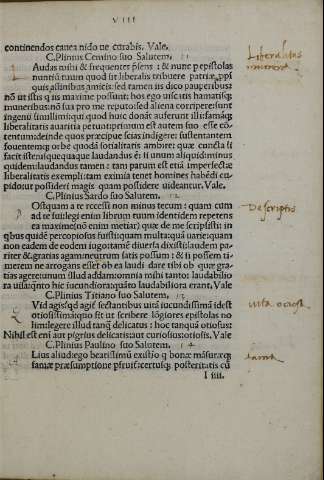 VIII
continendos cauea nido ue curabis. Vale.
C.Plinius Cemino suo Salutem.
Liberalitas
L
Audas mihi & frequenter
& nunc p epistolas
nuntiū tuum quod sit liberalis tribuere patriæ,
quis affinibus amicis: sed tamen iis dico pauperibus
nō ut istis q iis maxime possunt: hos ego uiscatis hamatisq;
muneribus nō sua pro me reputo: sed aliena corripere: sunt
ingenii simillimi: qui quod huic donāt auferunt illi: famāq;
liberalitatis auaritia petunt: primum est autem suo esse cō-
tentum: deinde quos præcipue scias indigere: sustentantem
fouentemq; orbe quodā sotialitatis ambire: quæ cuncta si
facit iste: usquequaque laudandus ē: si unum aliquid: minus
quidem: laudandus tamen: tam rarum est etiā imperfectæ
liberalitatis exempli: tam eximia tenet homines habēdi cu-
pido: ut possideri magis quam possidere uideantur. Vale.
C.Plinius Sardo suo Salutem.
Descriptio
Ostquam a te recessi non minus tecum: quam cum
ad te fui: legi enim librum tuum identidem repetens
ea maxime(nō enim metiar) quæ de me scripsisti: in
qbus quidē percopiosus fuisti: quam multa: quā uarie: quam
non eadem de eodem
diuersa dixisti: laudem pa-
riter & gratias agam: neutrum satis possum: & si possem ti-
merem ne arrogans esset ob ea laudi dare tibi ob quæ gra-
tias agerē: unum illud addam: omnia mihi tanto: laudabilio
ra uisa: qnto hic iucundiora: quāto laudabiliora erant, Vale
C.Plinius Titiano suo Salutem,
uita ociosa
Q
Vid agis: qd agis sectantibus uitā iucundissimā idest
otiosissimā: quo fit ut scribere lōgiores epistolas no
lim: legere illud tanq̄ delicatus: hoc tanquā otiosus:
Nihil est eni aut pigrius delicatis: aut curiosius otiosis. Vale
C.Plinius Paulino suo Salutem.
fama
Lius aliud: ego beatissimū existīo q bonæ māsuræq;
famæ præsumptione pfruit: certusq; posteritatis cū